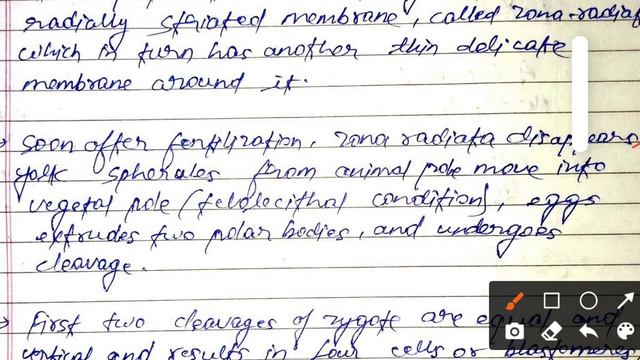 radially striated membrane, called zona-radiat
which in turn has another thin delicate
membrane around it.
Soon after fertilization, zona radiata disappears,
yolk spherules from animal pole move into
vegetal pole (telolecithal condition), eggs
extrudes two polar bodies, and undergoes
cleavage.
First two cleavages of zygote are equal and
vertical and results in four cells or blastomeres